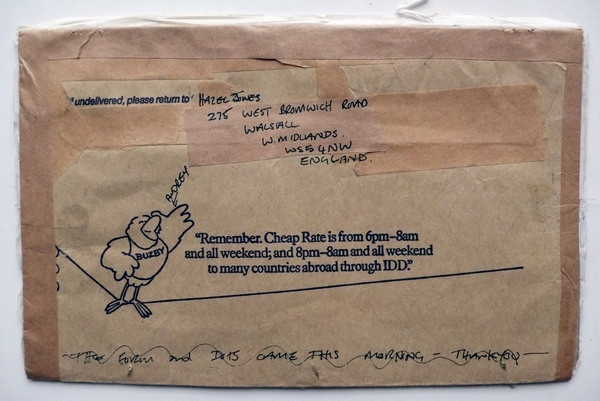 If undelivered, please return to HAZEL JONES
275 WEST BROMWICH ROAD
WALSALL
W. MIDLANDS.
WS5 4NW
ENGLAND.
AUDREY
BUZBY
"Remember. Cheap Rate is from 6pm–8am
and all weekend; and 8pm–8am and all weekend
to many countries abroad through IDD."
THE FORUM and DO15 CAME THIS MORNING – THANKYOU